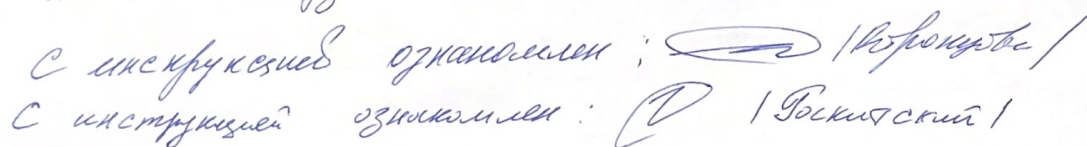 С инструкцией ознакомлен :
С инструкцией ознакомлен : /Госкитский/